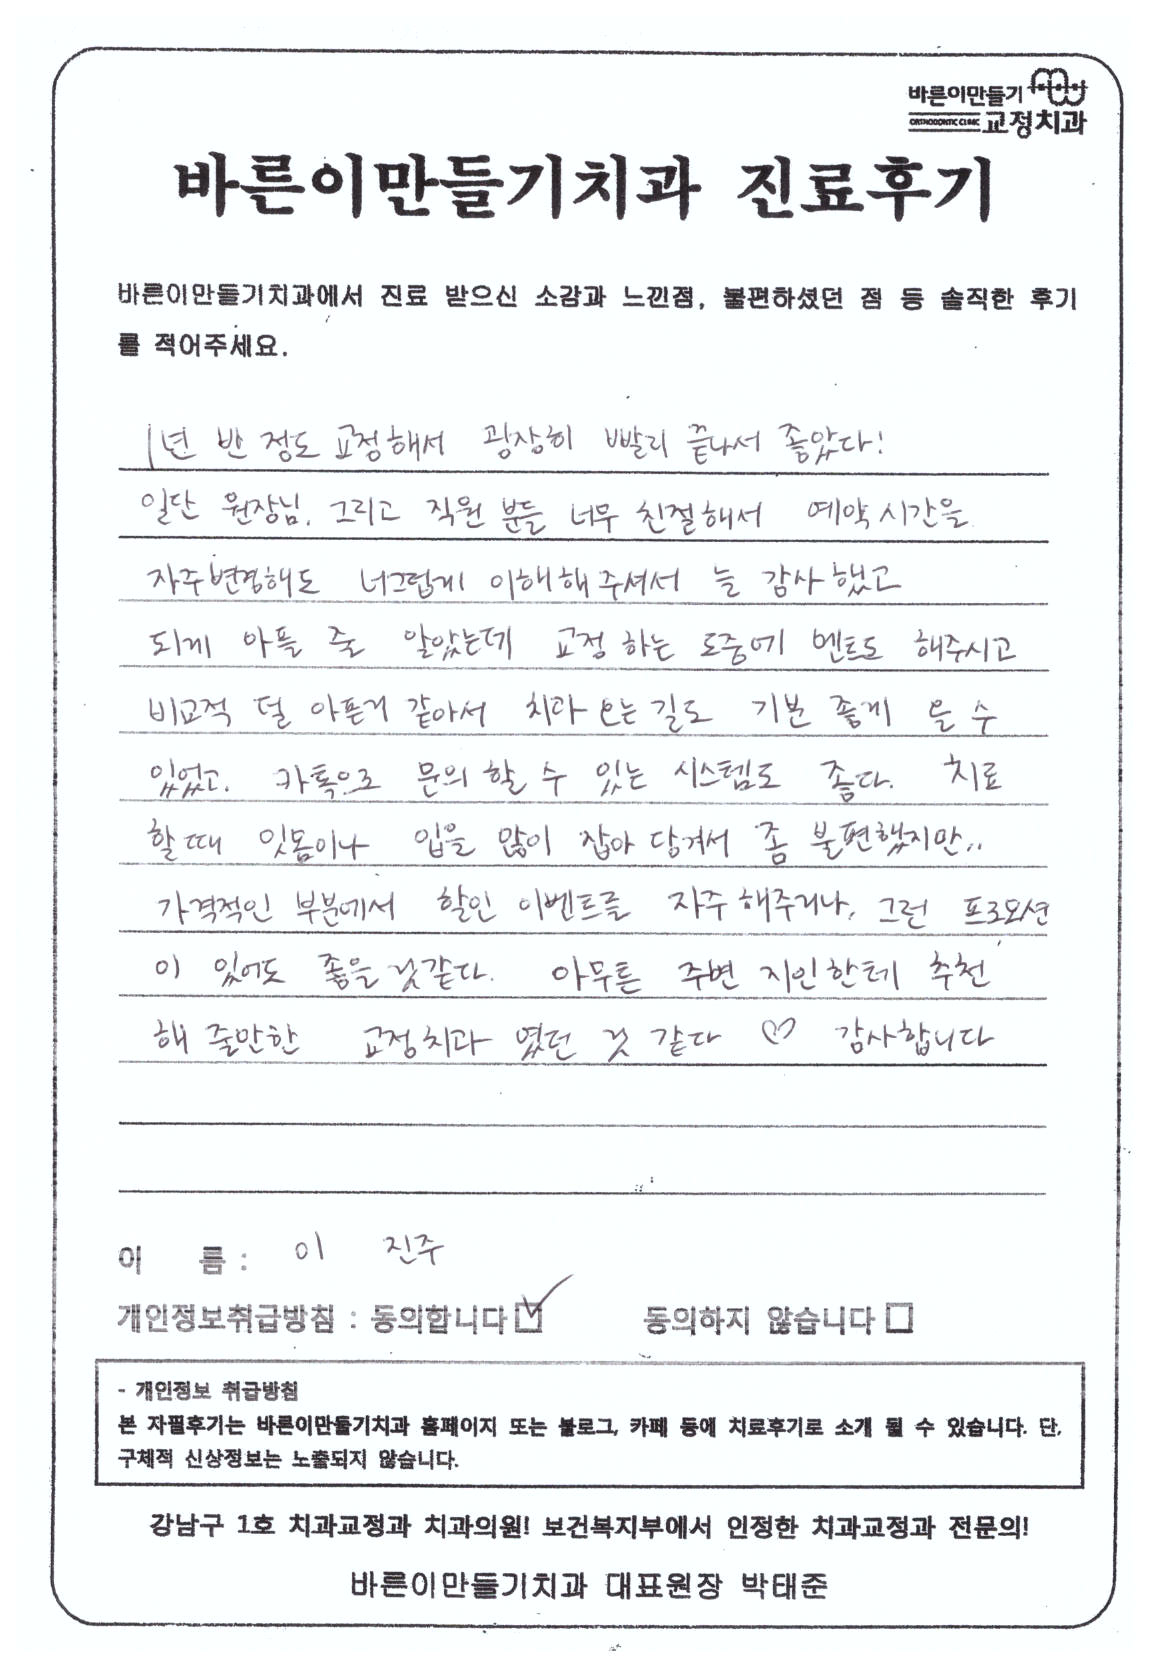 바른이만들기
ORTHODONTIC CLINIC 교정치과
바른이만들기치과 진료후기
바른이만들기치과에서 진료 받으신 소감과 느낀점, 불편하셨던 점 등 솔직한 후기
를 적어주세요.
1년 반 정도 교정해서 굉장히 빨리 끝나서 좋았다!
일단 원장님, 그리고 직원 분들 너무 친절해서 예약 시간을
자주 변경해도 너그럽게 이해해 주셔서 늘 감사했고
되게 아플 줄 알았는데 교정 하는 도중에 멘트도 해주시고
비교적 덜 아픈거 같아서 치과 오는 길도 기분 좋게 올 수
있었고. 카톡으로 문의 할 수 있는 시스템도 좋다. 치료
할 때 잇몸이나 입을 많이 잡아 당겨서 좀 불편했지만..
가격적인 부분에서 할인 이벤트를 자주 해주거나, 그런 프로모션
이 있어도 좋을 것 같다. 아무튼 주변 지인한테 추천
해 줄만한 교정치과 였던 것 같다 ♡ 감사합니다
이 름 : 이 진주
개인정보취급방침 : 동의합니다 ☑ 동의하지 않습니다 □
- 개인정보 취급방침
본 자필후기는 바른이만들기치과 홈페이지 또는 블로그, 카페 등에 치료후기로 소개 될 수 있습니다. 단,
구체적 신상정보는 노출되지 않습니다.
강남구 1호 치과교정과 치과의원! 보건복지부에서 인정한 치과교정과 전문의!
바른이만들기치과 대표원장 박태준